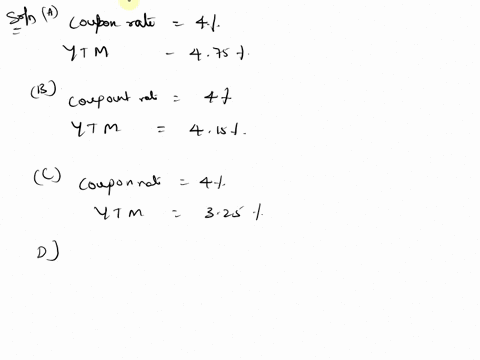 Soln (A) Coupon rate = 4%
YTM - 4.75%
(B) Coupount rate = 4%
YTM = 4.15%.
(C) Couponrate = 4%
YTM = 3.25%
D)